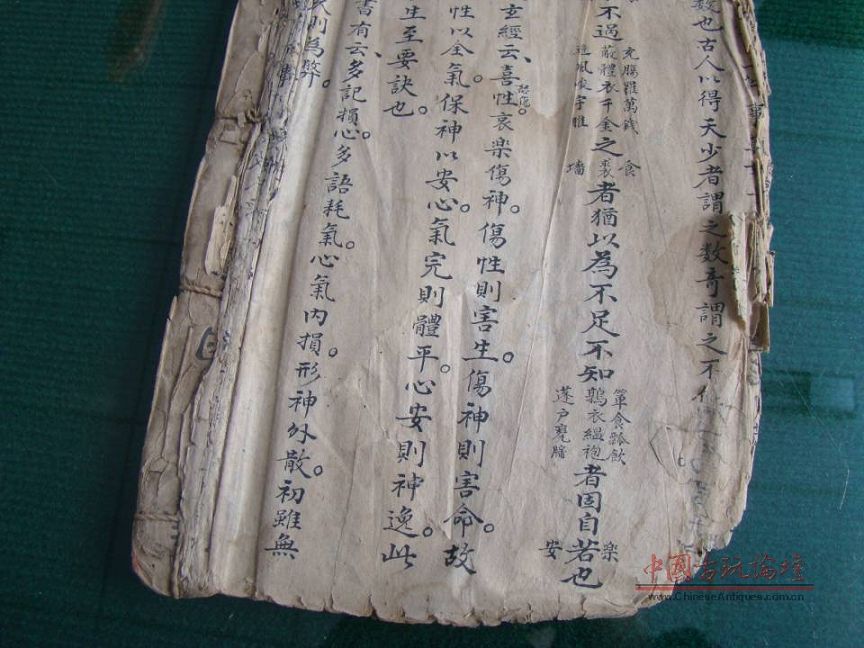 数也古人以得天少者謂之数奇謂之不
食
不過
充腸羅萬錢
蔽體衣千金
之
食
裘
墻
者猶以為不足不知
簞食瓢飲
鶉衣緼袍
蓬户甕牖
者固自若也
樂
安
玄經云、喜性哀楽傷神。傷性則害生。傷神則害命。故
性以全氣。保神以安心。氣完則體平。心安則神逸。此
生至要訣也。
書有云、多記損心。多語耗氣。心氣内損。形神外散。初雖無
則為弊。
中國古玩論壇
www.ChineseAntiques.com.cn